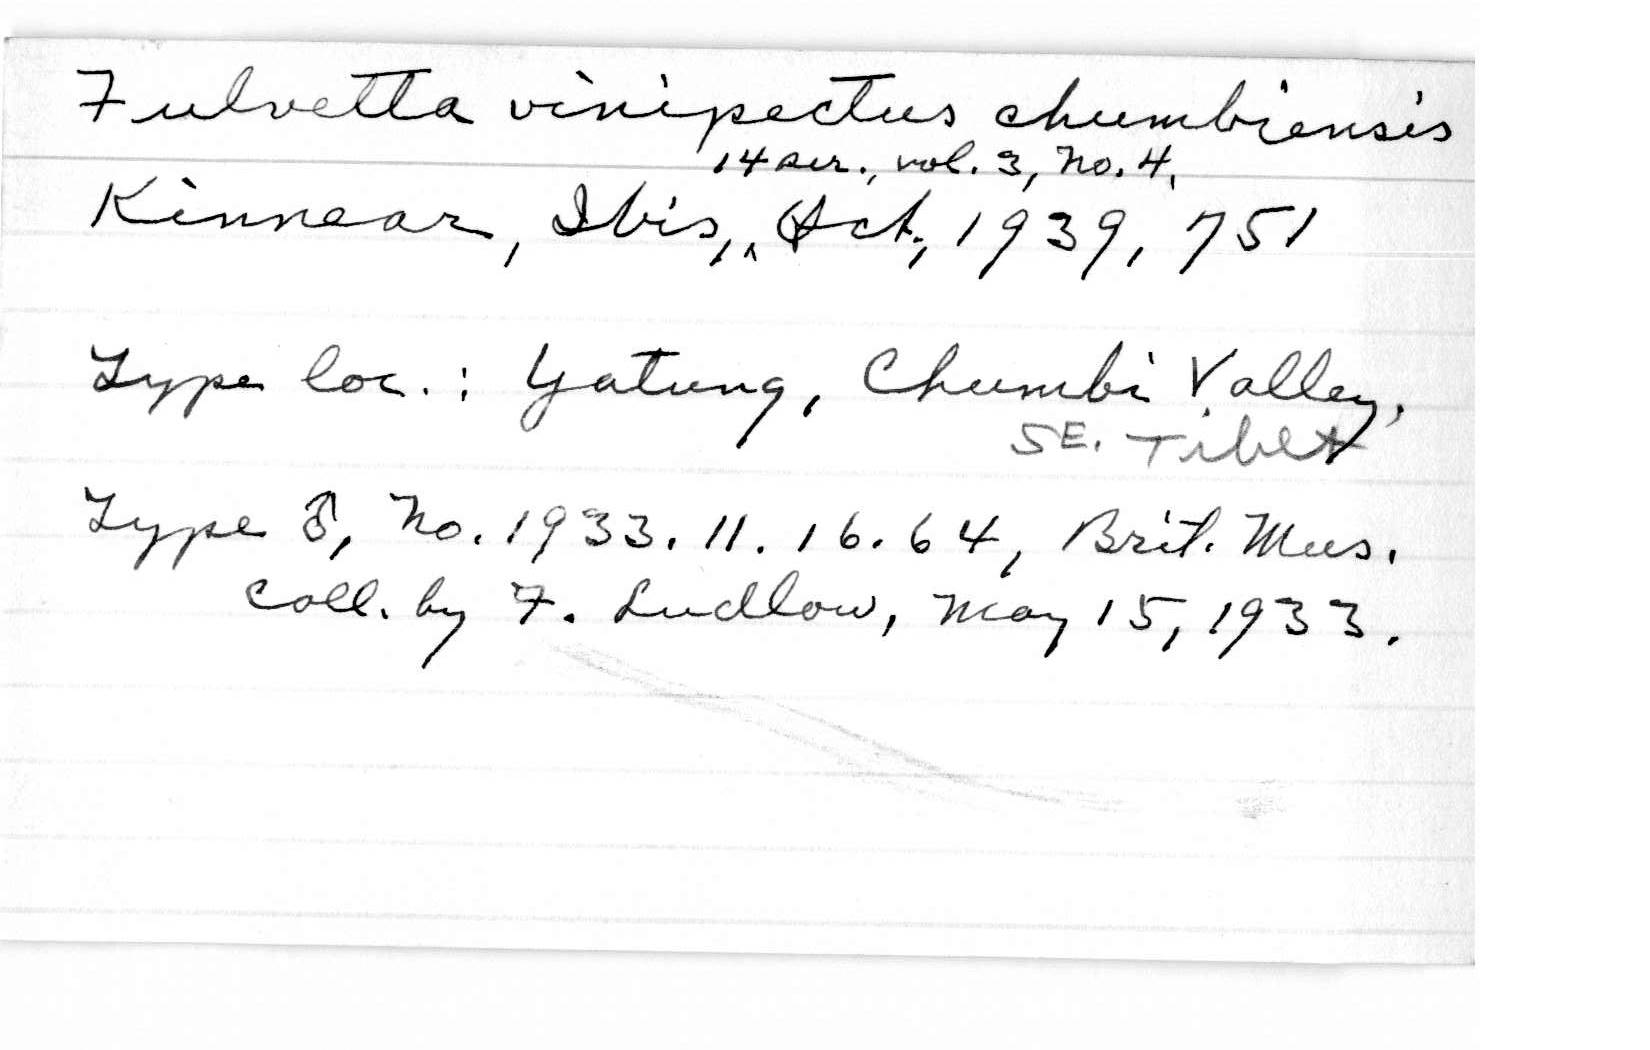 Fulvetta vinipectus chumbiensis
14 ser., vol. 3, No. 4,
Kinnear, Ibis, ‸ Oct., 1939, 751
Type loc. : Yatung, Chumbi Valley,
SE. Tibet
Type ♂, No. 1933. 11. 16. 64, Brit. Mus.
Coll. by F. Ludlow, May 15, 1933.